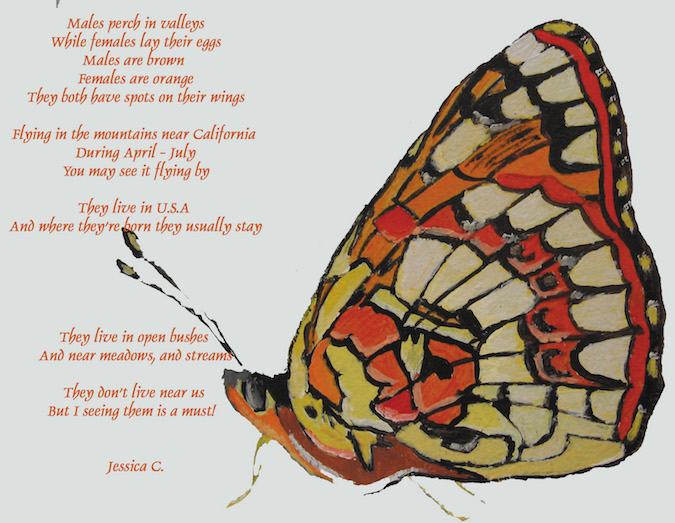 Males perch in valleys
While females lay their eggs
Males are brown
Females are orange
They both have spots on their wings
Flying in the mountains near California
During April - July
You may see it flying by
They live in U.S.A
And where they're born they usually stay
They live in open bushes
And near meadows, and streams
They don't live near us
But I seeing them is a must!
Jessica C.